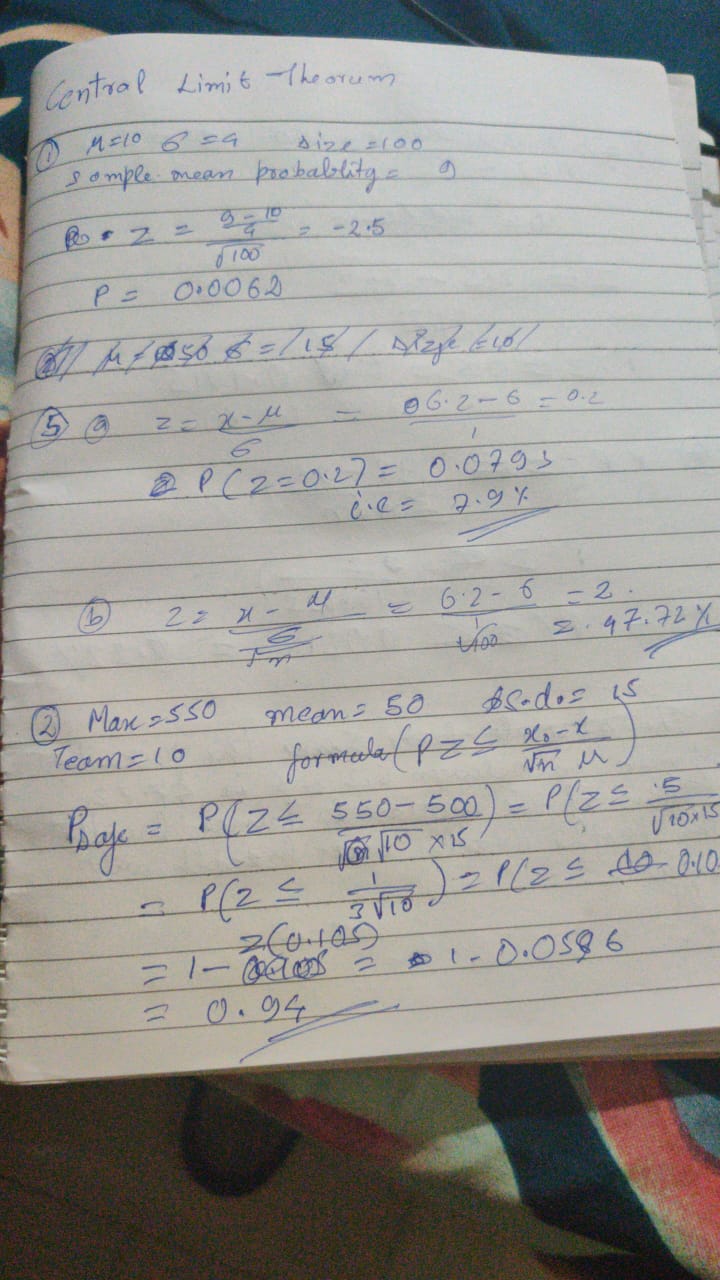 Central Limit Theorum
① μ=10 σ=4 size=100
sample mean probability = 9
z = (9-10)/(4/√100) = -2.5
P = 0.0062
⑤ ⓐ z = (x-μ)/σ = (6.2-6)/1 = 0.2
P(z=0.2) = 0.0793
i.e = 7.9%
ⓑ z = (x-μ)/(σ/√n) = (6.2-6)/(1/√100) = 2
= 47.72%
② Max=550 mean=50 s.d.=15
Team=10 formula (P z ≤ (x₀-x)/(√n μ))
P = P(z ≤ (550-500)/(√10 x15)) = P(z ≤ 5/(√10x15
= P(z ≤ 1/(3√10)) = P(z ≤ 0.10
z(0.105)
= 1- = 1-0.0596
= 0.94